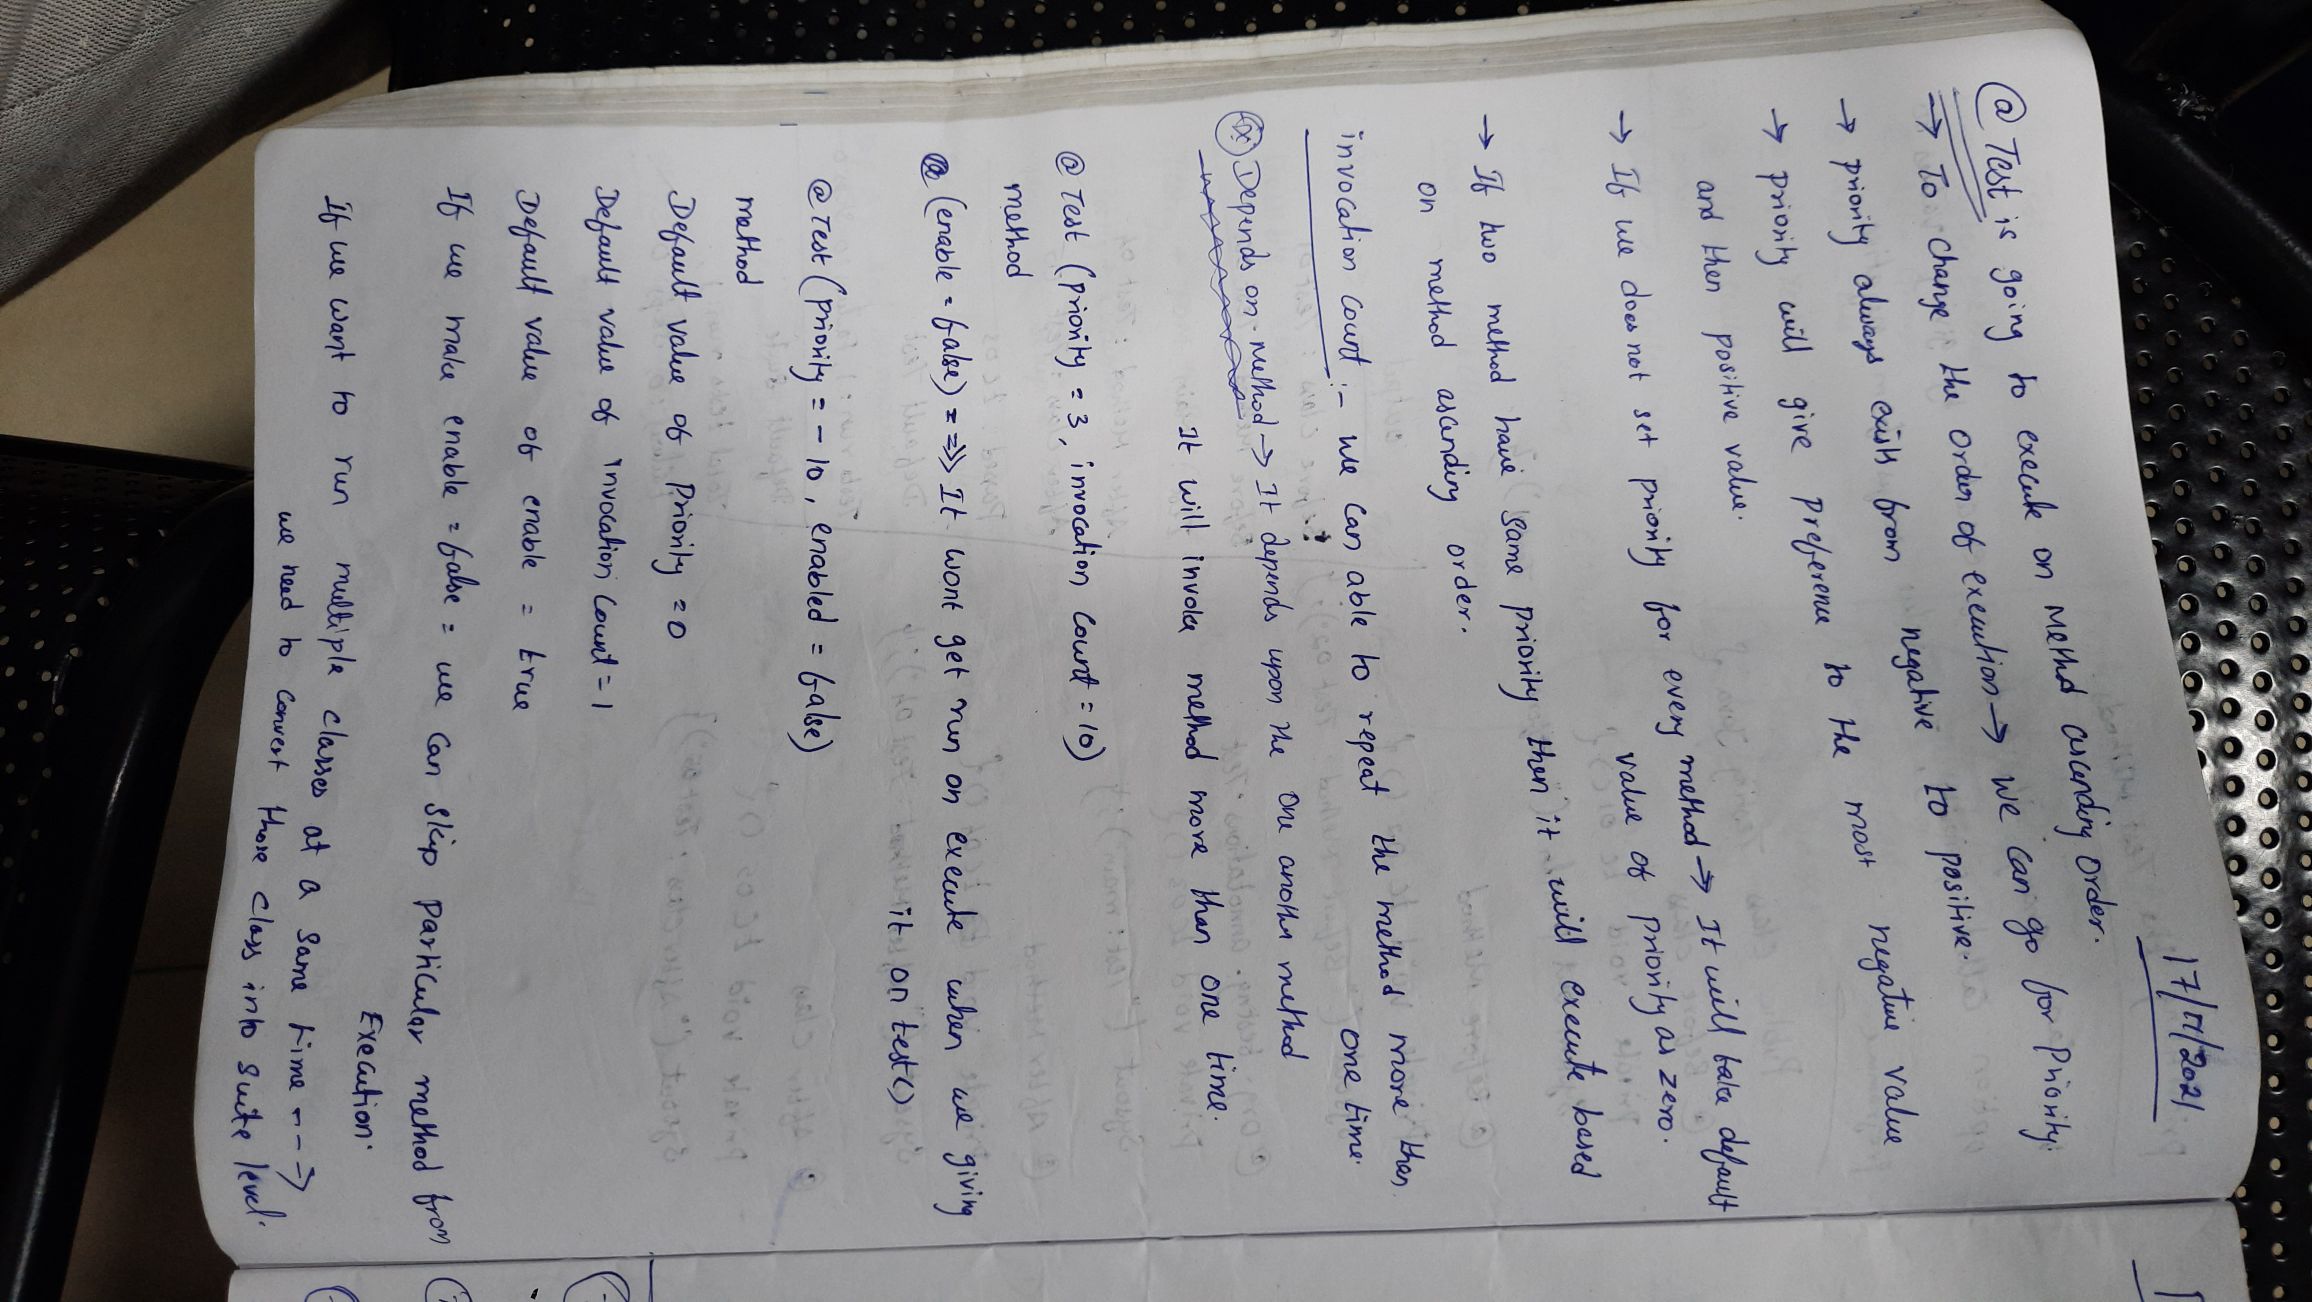 17/11/2021
@Test is going to execute on Method ascending order.
→ To change the order of execution → we can go for Priority.
→ priority always exists from negative to positive.
→ priority will give preference to the most negative value
and then positive value.
→ If we does not set priority for every method → It will take default
value of priority as zero.
→ If two method have same priority then it will execute based
on method ascending order.
invocation count :- we can able to repeat the method more than
one time.
Depends on method → It depends upon the one another method
It will invoke method more than one time.
@Test (priority = 3, invocation count = 10)
method
@ (enable = false) ==>> It wont get run on execute when we giving
it on test()
@Test (priority = -10, enabled = false)
method
Default value of Priority = 0
Default value of invocation count = 1
Default value of enable = true
If we make enable = false = we can skip particular method from
Execution.
If we want to run multiple classes at a same time --->
we need to convert those class into suite level.